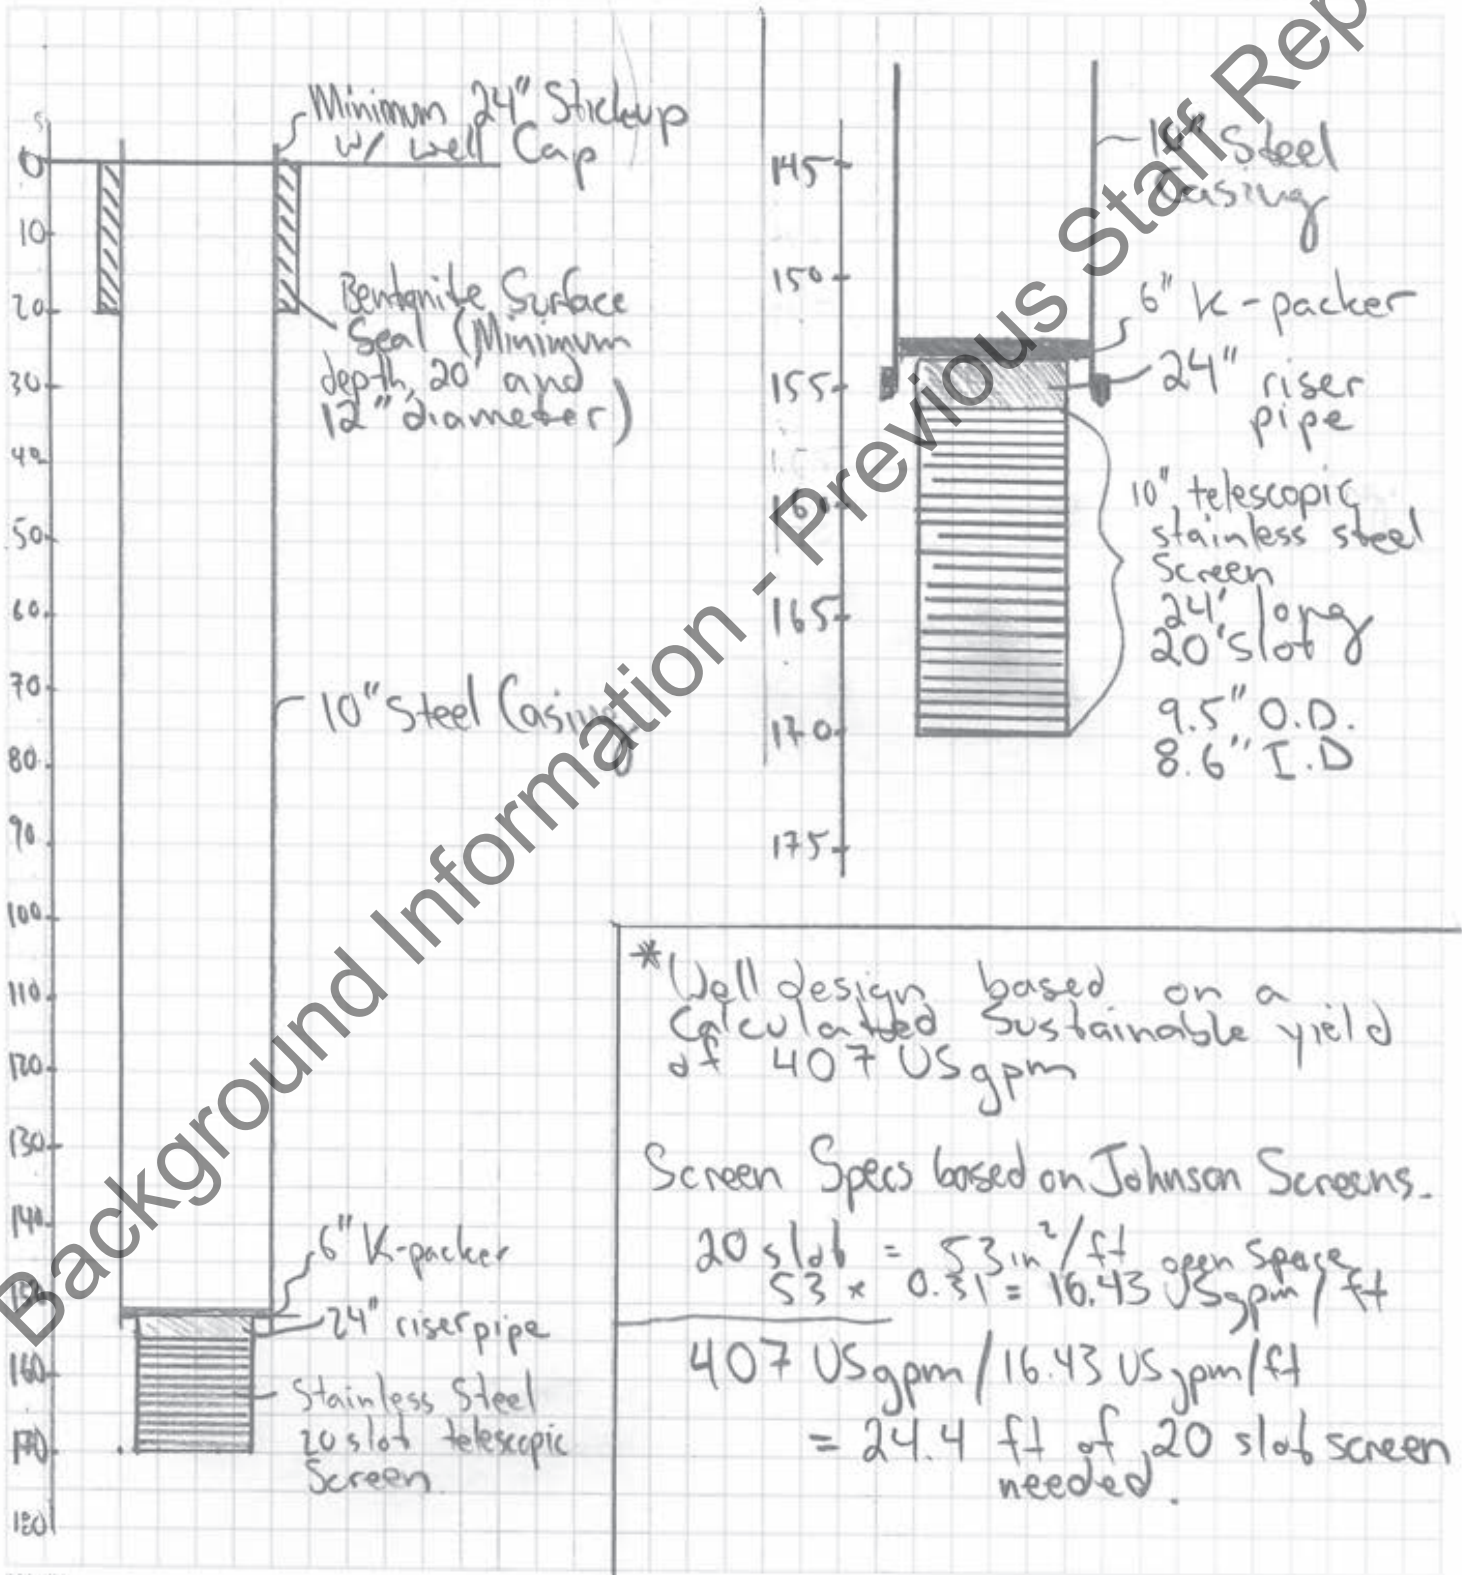 Minimum 24" Stickup
w/ well Cap
5
0
10
20
30
40
50
60
70
80
90
100
110
120
130
140
150
160
170
180
Bentonite Surface
Seal (Minimum
depth, 20' and
12" diameter)
10" Steel Casing
6" K-packer
24" riser pipe
Stainless Steel
20 slot telescopic
Screen
145
150
155
160
165
170
175
10" Steel
Casing
6" K-packer
24" riser
pipe
10" telescopic
stainless steel
Screen
24' long
20 slot
9.5" O.D.
8.6" I.D
*Well design based on a
Calculatted Sustainable yield
of 407 USgpm
Screen Specs based on Johnson Screens.
20 slot = 53 in²/ft open Space
53 x 0.31 = 16.43 USgpm/ft
407 USgpm/16.43 USgpm/ft
= 24.4 ft of 20 slot screen
needed.
Background Information - Previous Staff Rep